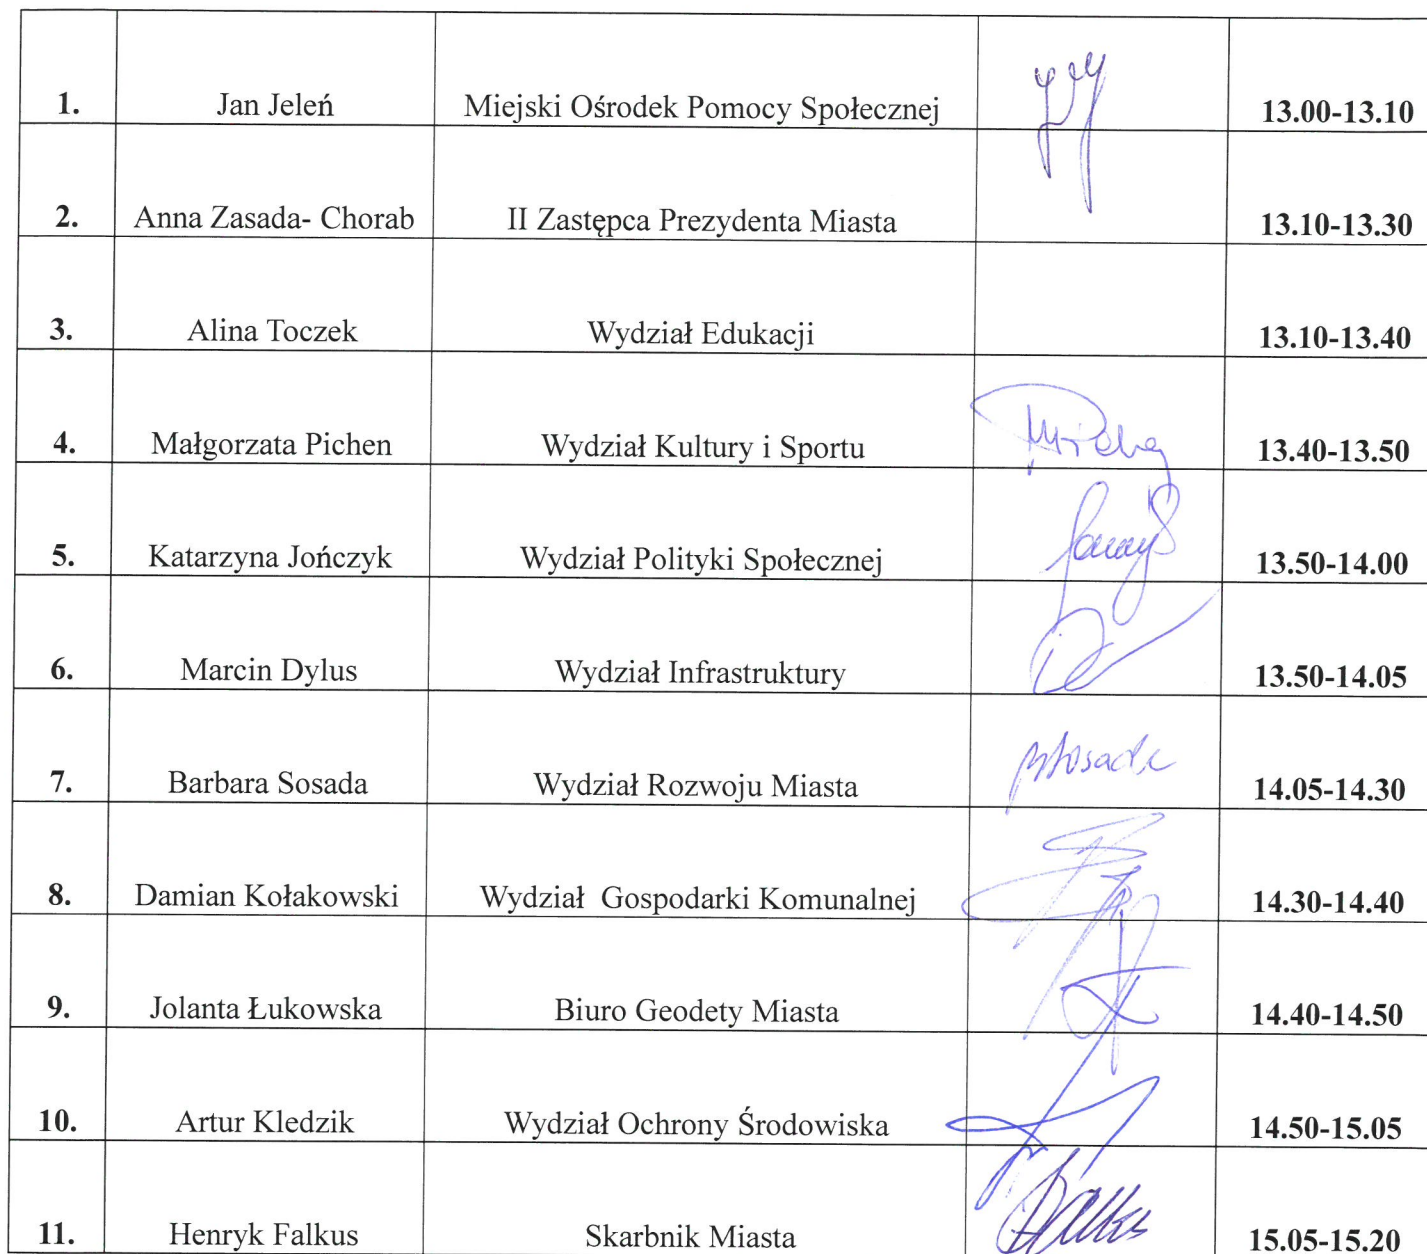 1. Jan Jeleń Miejski Ośrodek Pomocy Społecznej 13.00-13.10
2. Anna Zasada- Chorab II Zastępca Prezydenta Miasta 13.10-13.30
3. Alina Toczek Wydział Edukacji 13.10-13.40
4. Małgorzata Pichen Wydział Kultury i Sportu 13.40-13.50
5. Katarzyna Jończyk Wydział Polityki Społecznej 13.50-14.00
6. Marcin Dylus Wydział Infrastruktury 13.50-14.05
7. Barbara Sosada Wydział Rozwoju Miasta 14.05-14.30
8. Damian Kołakowski Wydział  Gospodarki Komunalnej 14.30-14.40
9. Jolanta Łukowska Biuro Geodety Miasta 14.40-14.50
10. Artur Kledzik Wydział Ochrony Środowiska 14.50-15.05
11. Henryk Falkus Skarbnik Miasta 15.05-15.20